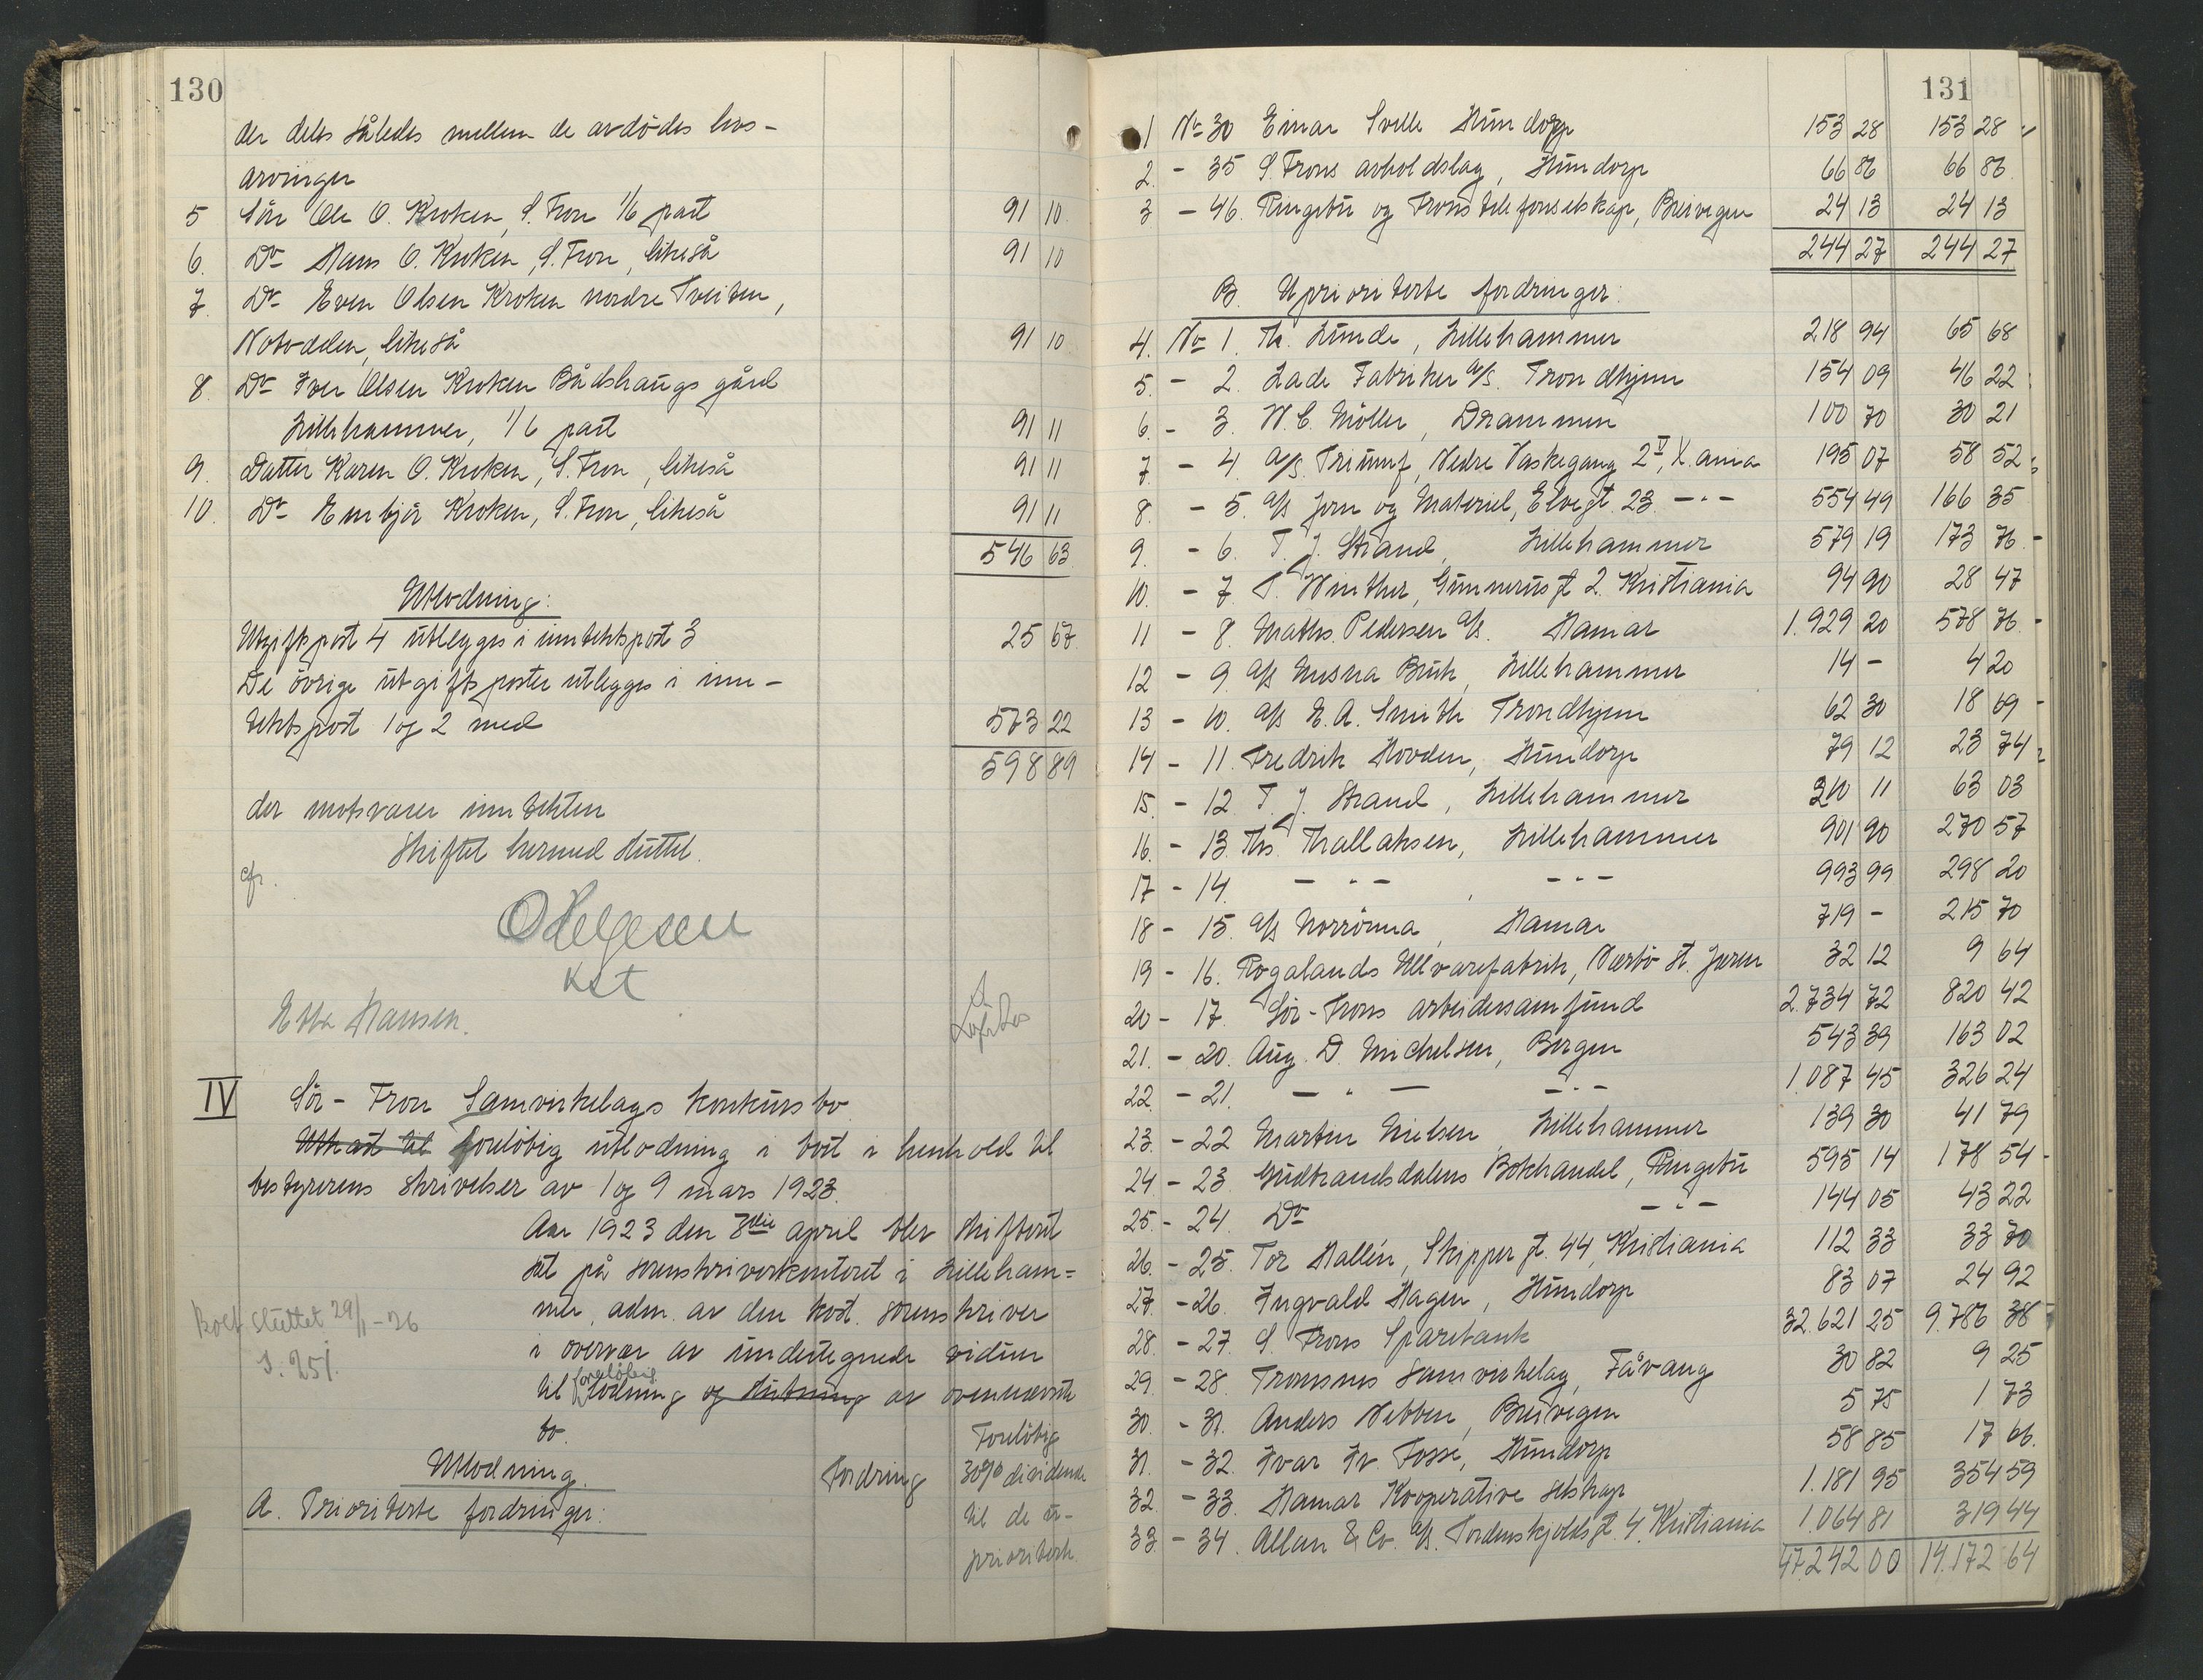 130
der deles således mellem de avdødes livs-
arvinger
5 Søn Ole O. Kroken, S. Fron 1/6 part 91 10
6. Do Hans O. Kroken, S. Fron, likeså 91 10
7. Do Even Olsen Kroken nordre Tveiten,
Notodden, likeså 91 10
8. Do Iver Olsen Kroken Bådshaugs gård
Lillehammer, 1/6 part 91 11
9. Datter Karen O. Kroken, S. Fron, likeså 91 11
10. Do Embjør Kroken, S. Fron, likeså 91 11
546 63
Utlodning:
Utgiftspost 4 utlegges i inntektspost 3 25 67
De øvrige utgiftsposter utlegges i inn-
tektspost 1 og 2 med 573 22
598 89
der motsvarer inntekten
Skiftet hermed sluttet.
cfr.
O Helgesen
Kst
Ester Hansen.
IV Sør-Fron Samvirkelags konkursbo
Utkast til foreløbig utlodning i boet i henhold til
bestyrerens skrivelser av 1 og 9 mars 1923.
Aar 1923 den 7die april blev skifterett
sat på sorenskriverkontoret i Lilleham=
mer, adm. av den konst. sorenskriver
i overvær av undertegnede vidner
til foreløbig lodning og slutning av ovennævnte
bo.
Boet sluttet 29/1-26
s. 251.
Utlodning. Fordring Foreløbig 30% dividende til de u-prioriterte.
A. Prioriterte fordringer:
131
1 No 30 Einar Sville Hundorp 153 28 153 28
2. - 35 S. Frons avholdslag, Hundorp 66 86 66 86
3 - 46. Ringebu og Frons telefonselskap, Breivegen 24 13 24 13
244 27 244 27
B. Uprioriterte fordringer:
4. No 1. Th. Lunde, Lillehammer 218 94 65 68
5. - 2. Lade Fabriker A/S. Trondhjem 154 09 46 22
6. - 3. W. C. Møller, Drammen 100 70 30 21
7 - 4. A/S. Triumf, Nedre Vaskegang 2 V, X.ania 195 07 58 52
8. - 5. A/S Jern og Materiel, Elvegt. 23. -"- 554 49 166 35
9. - 6. T. J. Strand, Lillehammer 579 19 173 76
10. - 7. T. Winther, Gunnerusgt 2. Kristiania 94 90 28 47
11 - 8 Maths. Pedersen A/S. Hamar 1.929 20 578 76
12 - 9. A/S Mesna Bruk, Lillehammer 14 - 4 20
13 - 10. A/S E. A. Smith Trondhjem 62 30 18 69
14 - 11. Fredrik Hovden, Hundorp 79 12 23 74
15 - 12 T. J. Strand, Lillehammer 210 11 63 03
16. - 13 Ths. Thallaksen, Lillehammer 901 90 270 57
17 - 14. -"- , -"- 993 99 298 20
18 - 15. A/S Norrøna, Hamar 719 - 215 70
19 - 16. Rogalands Ullvarefabrik, Nærbø st. Jæren 32 12 9 64
20 - 17. Sør-Frons arbeidersamfund 2.734 72 820 42
21. - 20. Aug. D. Michelsen, Bergen 543 39 163 02
22. - 21. -"- -"- 1.087 45 326 24
23. - 22 Martin Nielsen, Lillehammer 139 30 41 79
24 - 23 Gudbrandsdalens Bokhandel, Ringebu 595 14 178 54
25. - 24. Do -"- 144 05 43 22
26. - 25. Tor Hallén, Skippergt. 44, Kristiania 112 33 33 70
27. - 26. Ingvald Hagen, Hundorp 83 07 24 92
28. - 27. S. Frons Sparebank 32.621 25 9.786 38
29. - 28. Tromsnes Samvirkelag, Fåvang 30 82 9 25
30. - 31. Anders Nebben, Breivegen 5 75 1 73
31. - 32. Ivar Iv. Fosse, Hundorp 58 85 17 66.
32. - 33. Hamar Kooperative selskap 1.181 95 354 59
33. - 34. Allan & Co. A/S. Tordenskjoldsgt. 4. Kristiania 1.064 81 319 44
47.242 00 14.172 64